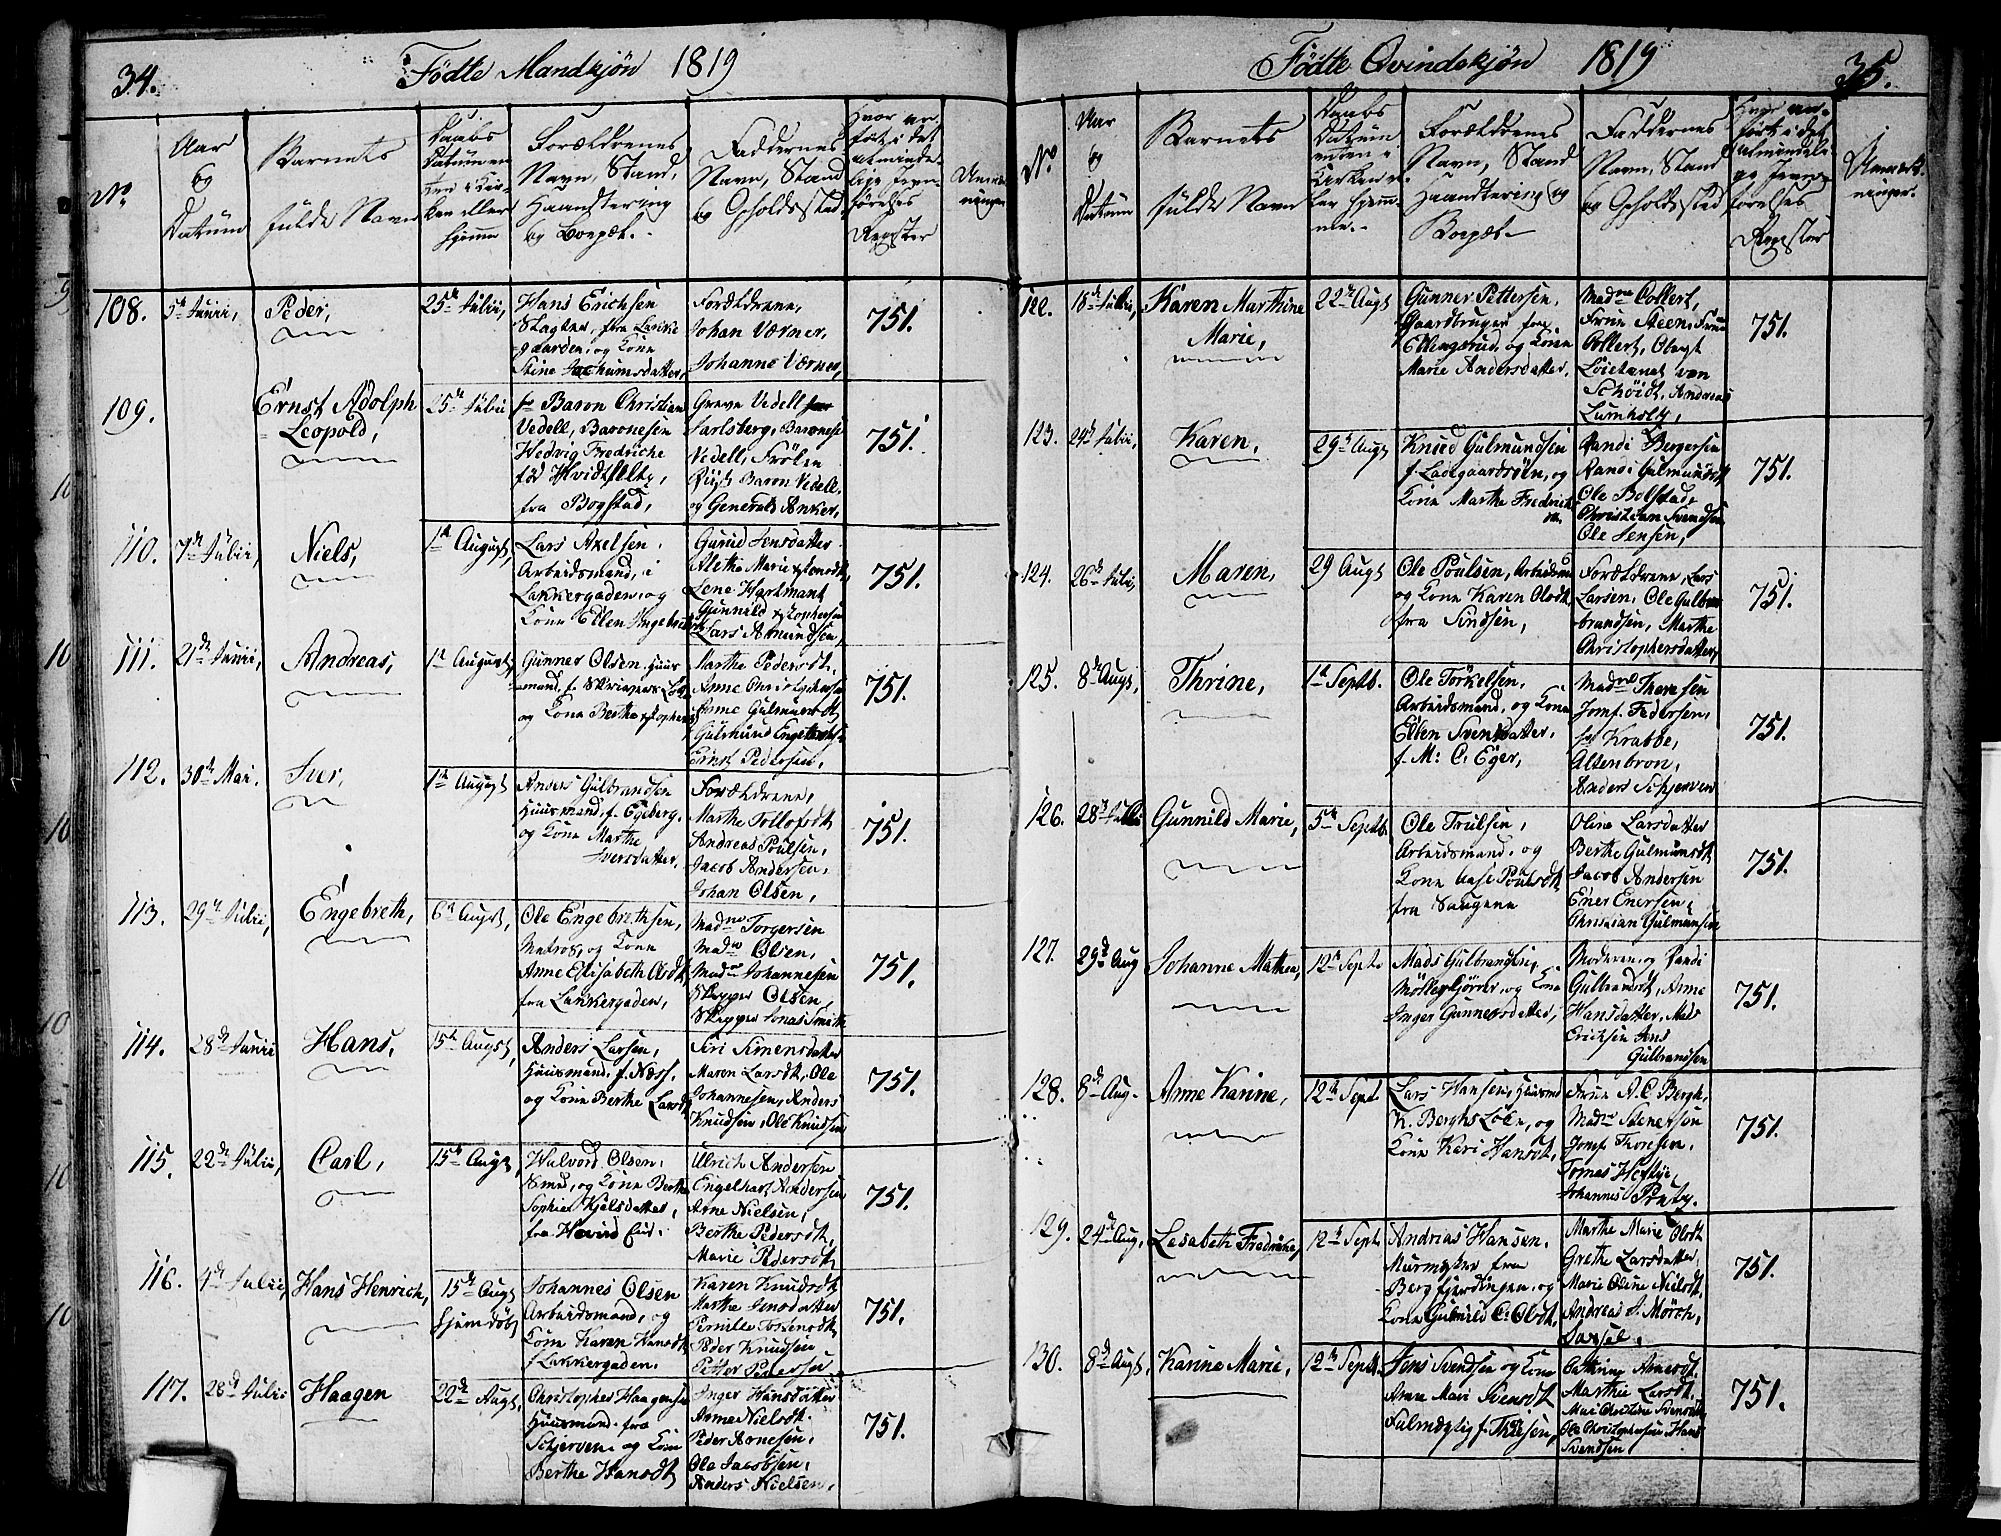 34.
Födte Mandkjön 1819
No
Aar
og
Datum
Barnets
fulde Navn
Daabs
Datum en
ten i Kir-
ken eller
hjemme
Forældrenes
Navn, Stand,
Haandtering
og Boepæl.
Faddernes
Navn, Stand
og Opholdssted
Hvor an-
ført i det
almindel-
lige Jevn-
førelses
Register
108.
5te Junii,
Peder,
25de Julii,
Hans Erichsen
Slagter, fra Lakke
gaarden, og Kone
Stine Jochumsdatter,
Forældrene,
Johan Værner,
Johanne Værner,
751.
109.
Ernst Adolph
Leopold,
25de Julii
Hr Baron Christian
Vedell, Baronesen
Hedvig Fredriche
fød Hvidtfeldt,
fra Bogstad,
Greve Vedell
Jarlsberg, Baronese
Vedell, Frölen
Baron Vedell,
og Generald Anker,
751.
110.
7de Julii,
Niels,
1te August,
Lars Axelsen,
Arbeidsmand, i
Lakkergaden, og
Kone Ellen Ingebretsd
Gurud Jensdatter
Alethe Marie
Lene Hartmant
Gunnild
Lars Amundsen,
751.
111.
21de Junii,
Andreas,
1te August,
Gunner Olsen, Huus
mand, f.
og Kone Berthe
Marthe Pedersdt,
Anne
Anne Gulmundsdt
Gulmund
Ernst Pedersen,
751.
112.
30te Mai.
Iver,
1te August
Anders Gulbrandsen
Huusmand, f. Egeberg.
og Kone Marthe
Iversdatter,
Forældrene,
Marthe Tollofsdt
Andreas Poulsen,
Jacob Andersen,
Johan Olsen,
751.
113.
29de Julii,
Engebreth,
6te Augst,
Ole Engebrethsen,
Matros, og Kone
Anne Elisabeth Olsdt,
fra Lakkergaden,
Madme Torgersen
Madme Olsen,
Madme Johannesen
Skipper Olsen,
Skipper Jonas Smith
751.
114.
28de Junii
Hans,
15de Augst,
Anders Larsen,
Huusmand, f. Næss,
og Kone Berthe Larsdt
Siri Simensdatter
Maren Larsdt, Ole
Johannesen, Anders
Knudsen, Ole Knudsen
751.
115.
22de Julii,
Carl,
15de Augst,
Halvord Olsen,
Smed, og Kone Berthe
Sophie Kjelsdatter,
fra Hovind Eie.
Ulrich Andersen
Engelhart Andersen
Arne Nielsen,
Berthe Pedersdt,
Marie Pedersdt
751.
116.
4de Julii,
Hans Henrich,
15de Augst
hjemdöbt
Johannes Olsen
Arbeidsmand, og
Kone Karen Hansdt
f. Lakkergaden.
Karen Knudsdt
Marthe Jensdatter
Pernille Torstensdt
Peder Knudsen
Petter Pedersen
751.
117.
28de Julii
Haagen
22de Augst,
Christopher Haagensen
Huusmand fra
Schjerven og Kone
Berthe Hansdt
Inger Hansdatter
Anne Nielsdt.
Peder Arnesen,
Ole Jacobsen,
Anders Nielsen,
751.
35.
Födte Qvindekjön 1819
No
Aar
og
Datum
Barnets
fulde Navn
Daabs
Datum
enten i
Kirken el-
ler hjem-
me.
Forældrenes
Navn, Stand
Haandtering og
Boepæl
Faddernes
Navn, Stand
og Opholdssted
Hvor an-
fört i det
almindeli-
ge Jevn-
förelses
Register
Anmærk-
ninger.
122.
18de Julii,
Karen Marthine
Marie,
22de Augst
Gunner Pettersen,
Gaardbruger fra
Ellingsrud, og Kone
Marie Andersdatter,
Madme Collert,
Frue Steen, Frue
Collert, Olegt
Löietenet van
Schöidt, Andreas
Lumholtz,
751.
123.
24de Julii,
Karen,
29de Augst
Knud Gulmundsen
f. Ladegaardsöen, og
Kone Marthe Fredriks
Randi Bergersen
Randi Gulmundsdt
Ole Bolstad,
Christian Svendsen
Ole Jensen,
751.
124.
26de Julii,
Maren,
29 Augst
Ole Poulsen, Arbeidsm
og Kone Karen Olsdt,
fra Sindsen,
Forældrene, Lars
Larsen, Ole Gulb
brandsen, Marthe
Christophersdatter,
751.
125.
8de Augst,
Thrine,
1te Septb.
Ole Törkelsen,
Arbeidsmand, og Kone
Ellen Svendsdatter,
f. M: C. Eger,
Madme Thoresen
Jomf. Pedersen,
Hr Krabbe,
Altenbron,
Anders Schjerven
751.
126.
28de Julii
Gunnild Marie,
5te Septb.
Ole Trulsen,
Arbeidsmand, og
Kone Aase Poulsdt.
fra Saugene
Oline Larsdatter
Berthe Gulmundsdt
Jacob Andersen
Ener Enersen,
Christian Gulmundsen
751.
127.
29de Aug
Johanne Mathea,
12te Septb
Mads Gulbrandsen,
Möllerkjörer, og Kone
Inger Gunnersdatter,
Moderen, og Randi
Gulbrandsdt, Anne
Hansdatter, Mads
Ericksen Jens
Gulbrandsen
751.
128.
8de Aug.
Anne Karine,
12te Sept
Lars Hansen, Huusmd
K. Berghs Löke, og
Kone Kari Hansdt,
Frue A. C. Bergh,
Madme Stenersen
Jomf Thoresen,
Tomas Heftye,
Johannes Pratz.
751.
129.
24de Aug,
Lesabeth Fredrikke,
12te Sept
Andrias Hansen,
Murmester fra
Bergfjerdingen, og
Kone Gulnild C. Olsdt,
Marthe Marie Olsdt
Grethe Larsdatter,
Marie Oline Nielsdt,
Andreas J. Mörch,
751.
130.
8de Augst,
Karine Marie,
12te Septb.
Jens Svendsen og Kone
Anne Mari Svensdt
Fulmægtig f. Thiesen,
Cathrine Arnesdt,
Marthe Larsdt.
Mari Christine Svensdt
Ole Christophersen Hans
Svendsen
751.